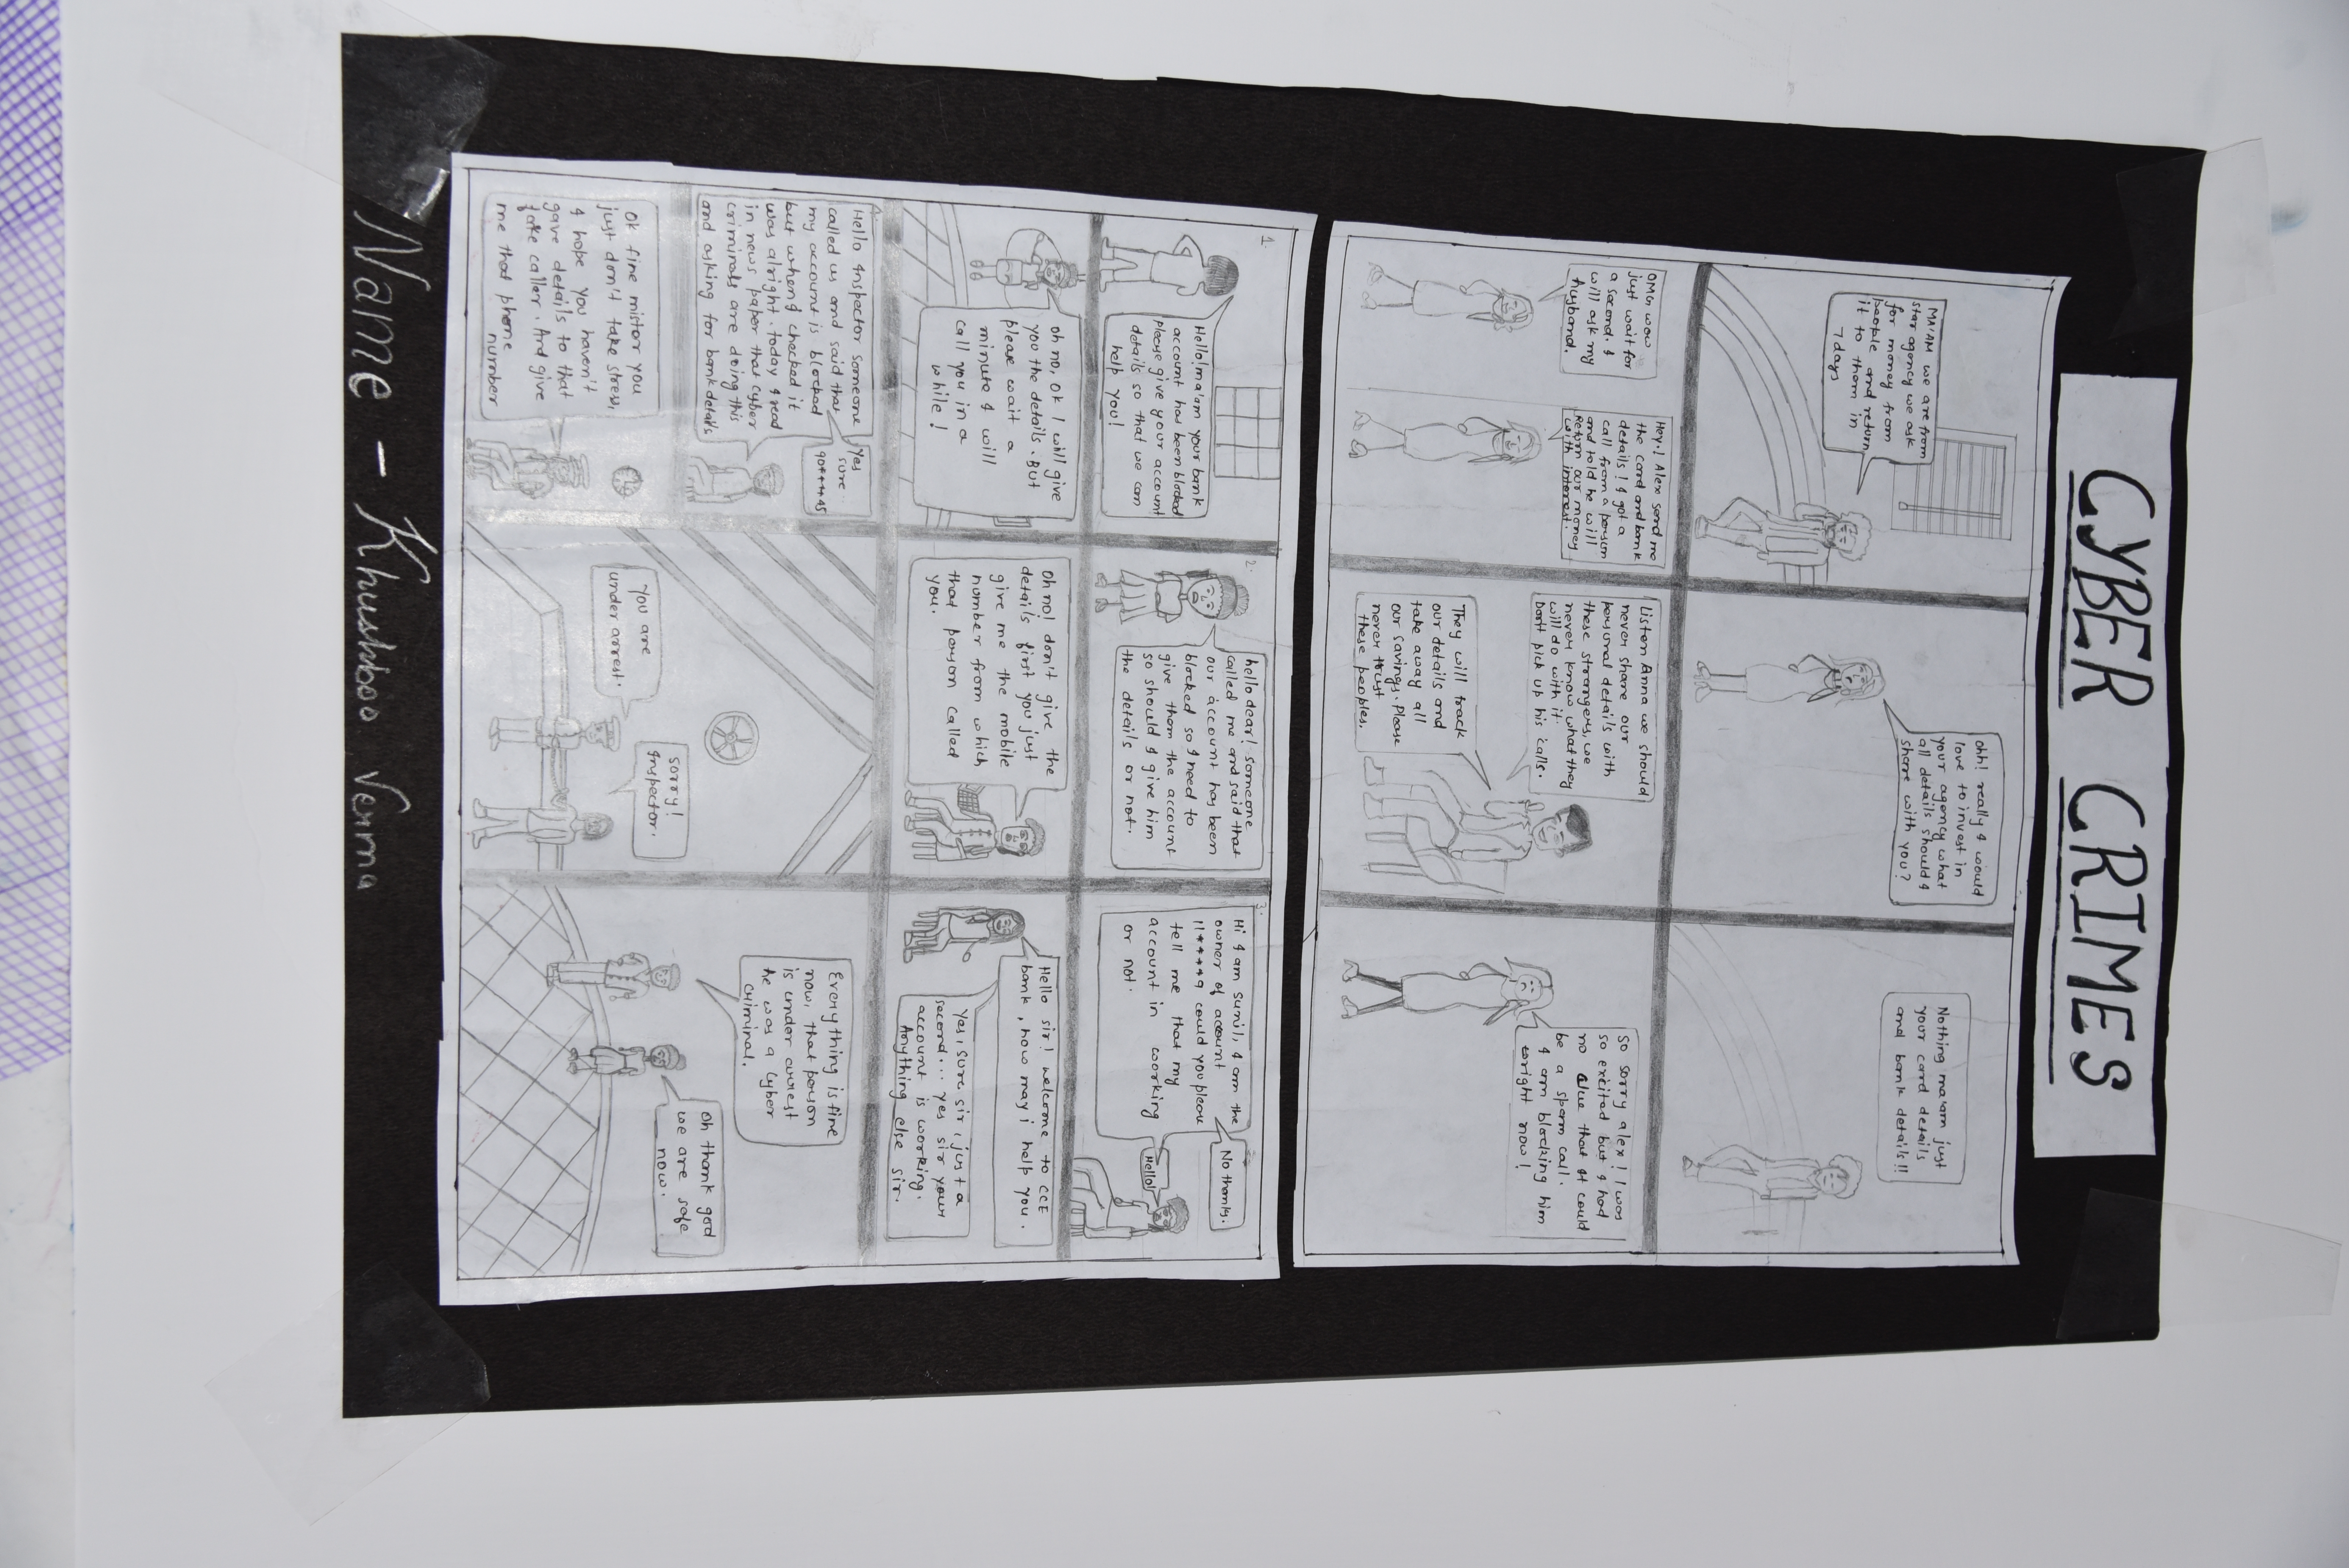 CYBER CRIMES
MA'AM we are from
star agency we ask
for money from
people and return
it to them in
7 days
ohh! really I would
love to invest in
your agency what
all details should I
share with you?
Nothing ma'am just
your card details
and bank details!!
OMG wow
just wait for
a second. I
will ask my
husband.
Hey! Alex send me
the card and bank
details! I got a
call from a person
and told he will
return our money
with interest.
Listen Anna we should
never share our
personal details with
these strangers, we
never know what they
will do with it.
Don't pick up his calls.
They will track
our details and
take away all
our savings. Please
never trust
these peoples.
So sorry alex! I was
so excited but I had
no clue that it could
be a spam call.
I am blocking him
right now!
1.
Hello! ma'am your bank
account has been blocked
please give your account
details so that we can
help you!
2.
hello dear! someone
called me and said that
our account has been
blocked so I need to
give them the account
so should I give him
the details or not.
3.
Hi I am sunil, I am the
owner of account
11****9 could you please
tell me that my
account in working
or not.
No thanks.
Hello!
oh no, ok I will give
you the details. But
please wait a
minute I will
call you in a
while!
Oh no! don't give the
details first you just
give me the mobile
number from which
that person called
you.
Hello sir! welcome to CCE
bank, how may i help you.
Yes, sure sir, just a
second... yes sir your
account is working.
Anything else sir.
Hello Inspector someone
called us and said that
my account is blocked
but when I checked it
was alright. today I read
in news paper that cyber
criminals are doing this
and asking for bank details
Yes
sure..
90****45
Ok fine mistor you
just don't take stress,
I hope you haven't
gave details to that
fake caller. And give
me that phone
number
You are
under arrest.
sorry!
Inspector.
Everything is fine
now, that person
is under arrest
he was a cyber
criminal.
oh thank god
we are safe
now.
Name - Khushboo Verma